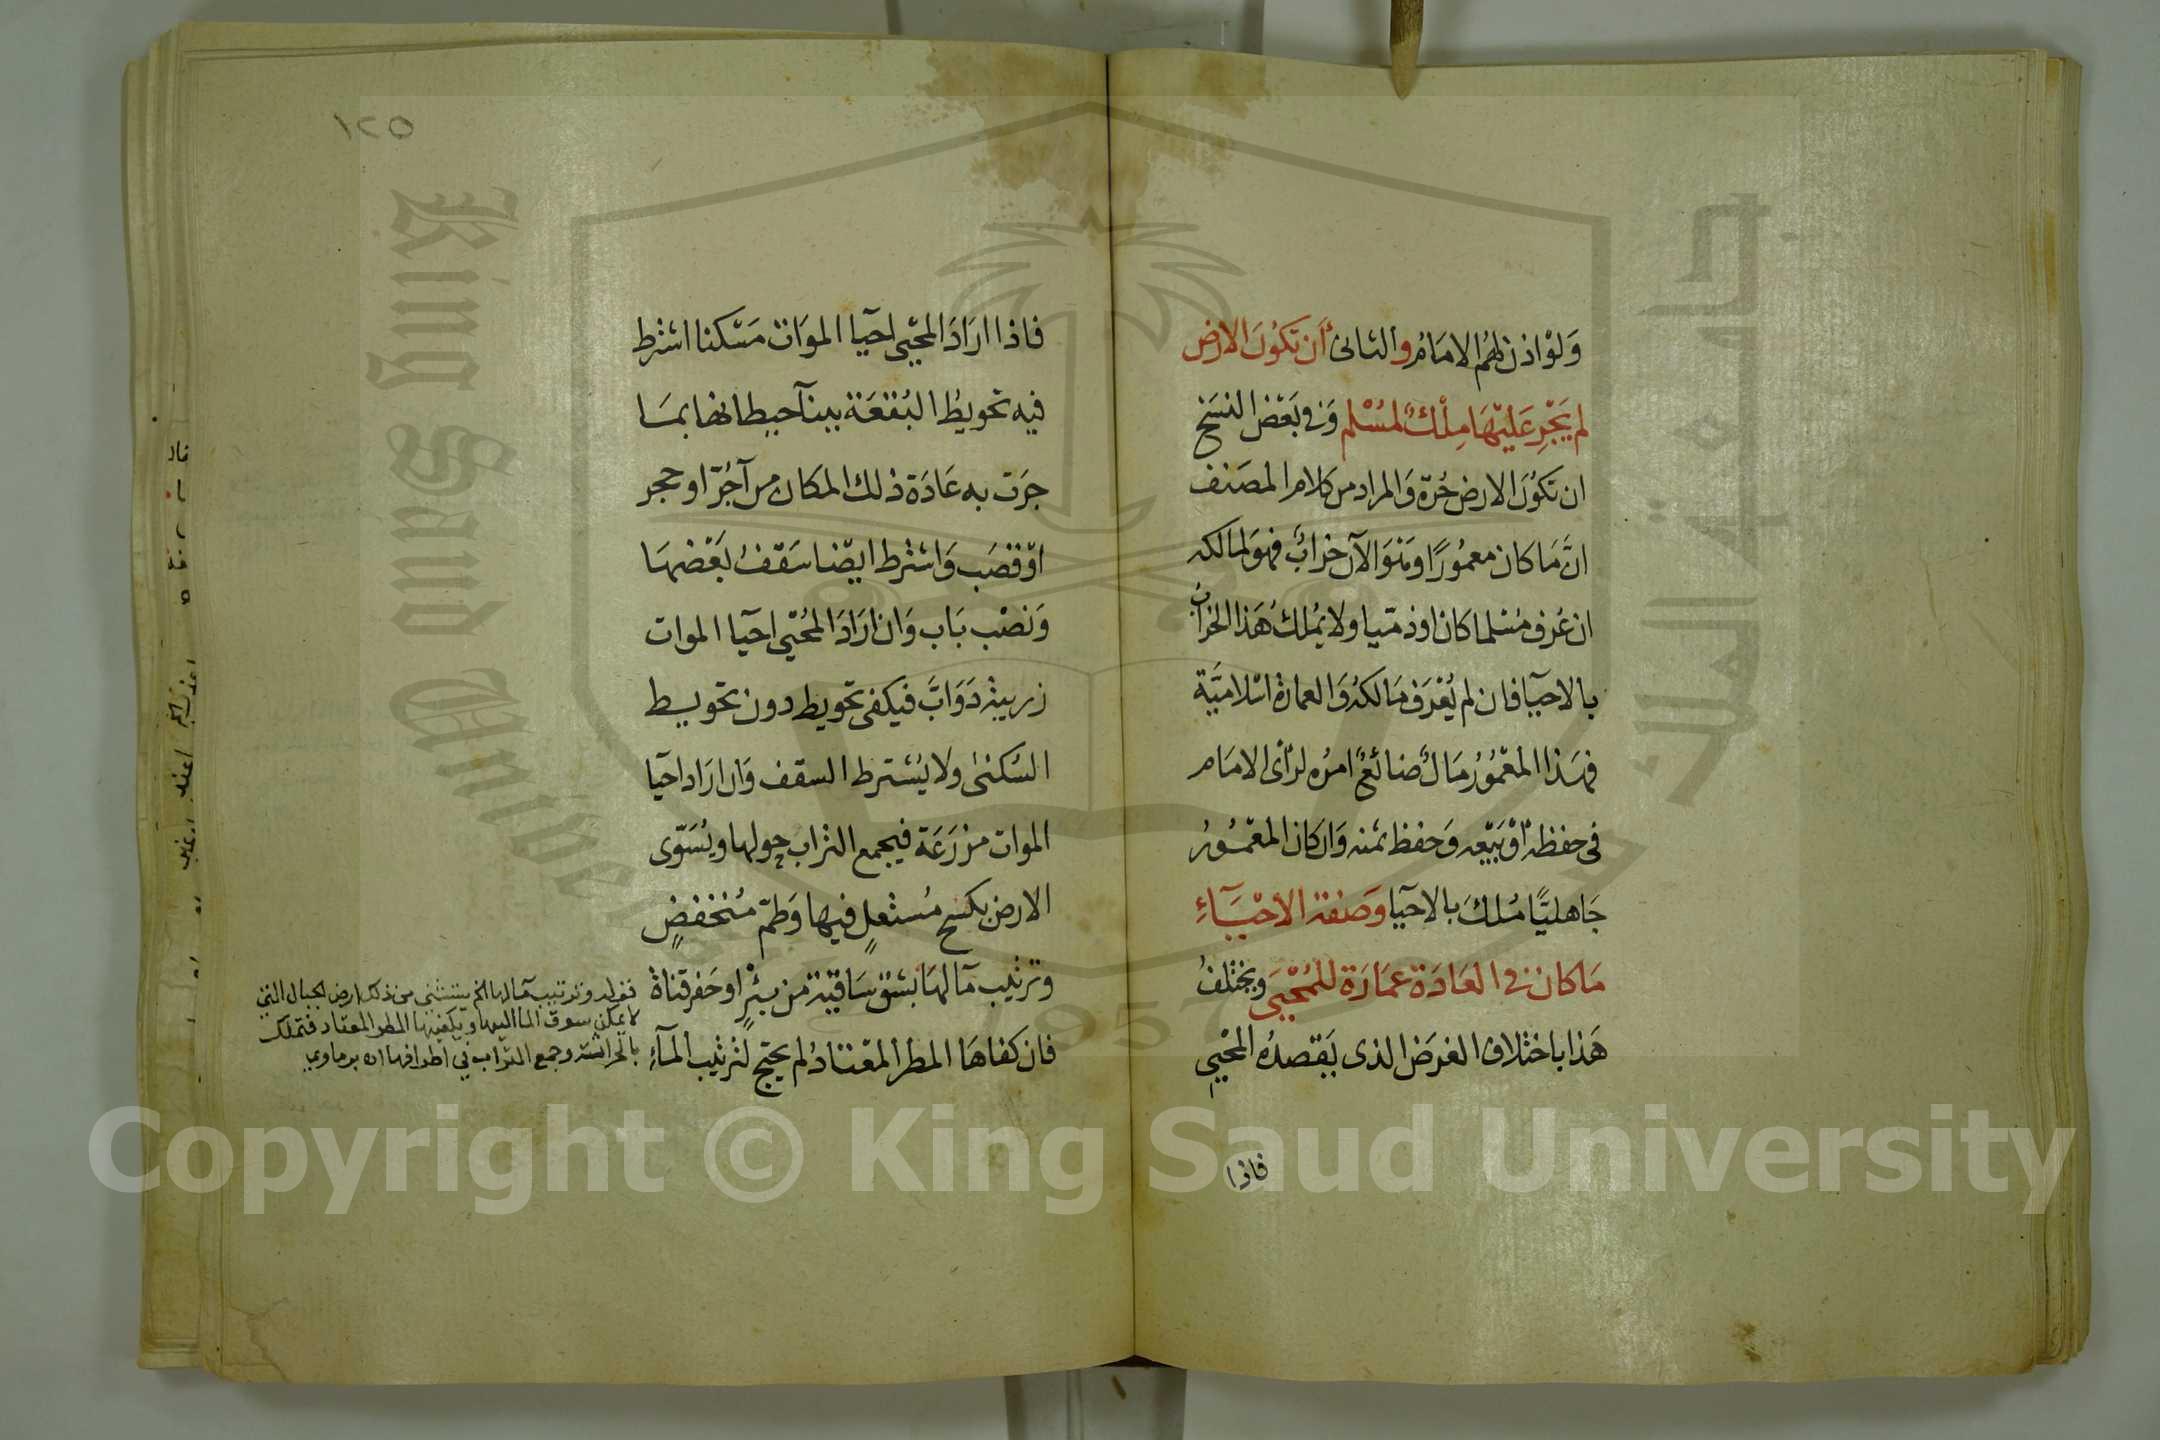 وَلَوْ اذن لهُم الامَامُ والثانى أن تكُونَ الارض
لم يَجْرِ عَلَيْهَا مِلْكٌ لمُسْلم وَفى بَعْض النسَخ
ان تكُونَ الارض حُرّة وَالمراد من كلام المصَنف
انَّ مَا كان معمُورًا وهوَ الآن خرابٌ فهوَ لمالكه
ان عُرف مُسْلما كان اوذمّيا ولا يُملكُ هَذا الخراب
بالاحيا فان لم يُعْرَف مَالكهُ وَالعمارة اسْلاميَّة
فهَذا المعْمُورُ مَالٌ ضائعٌ امرُه لرَأى الامَام
فى حفظه أوْ بَيْعه وَحفظ ثمنه وَان كان المعْمُورُ
جَاهليًّا مُلكَ بالاحيا وَصفة الاحْيَآءِ
مَا كان فى العَادَة عمَارَة للمُحْيى ويختَلفُ
هَذا باختلاف الغرَض الذى يَقصدُه المحْيى
فاذا
١٢٥
فاذا ارَادَ المحْيى احيآ الموَات مَسْكنا اشترط
فيه تحويطُ البُقعَة ببنآ حيطانها بمَا
جرَت به عَادَة ذلك المكان من آجُرّ او حجر
اوْ قصَب وَاشترط ايضا سَقفُ بَعْضهَا
وَنصْب بَاب وَان ارَادَ المُحْيى احيآ الموات
زريبة دَوَابَّ فيكفى تحويط دون تحويط
السُكنىٰ ولا يُشترط السقف وَان ارَاد احيآ
الموات مزرَعَة فيجمع التراب حولها ويُسَوّى
الارض بكسح مُستعلٍ فيها وَطمّ مُنخفضٍ
وترتيب مآ لهَا بشق سَاقية من بئرٍ او حَفر قناة
فان كفاهَا المطر المعْتادُ لم يحتج لترتيب المآء
قوله وترتيب مآ لها الخ يستثنى من ذلك ارض الجبال التي
لا يمكن سوق الما اليها ويكفيها المطر المعتاد فتملك
بالحراثة وجمع التراب في اطرافها